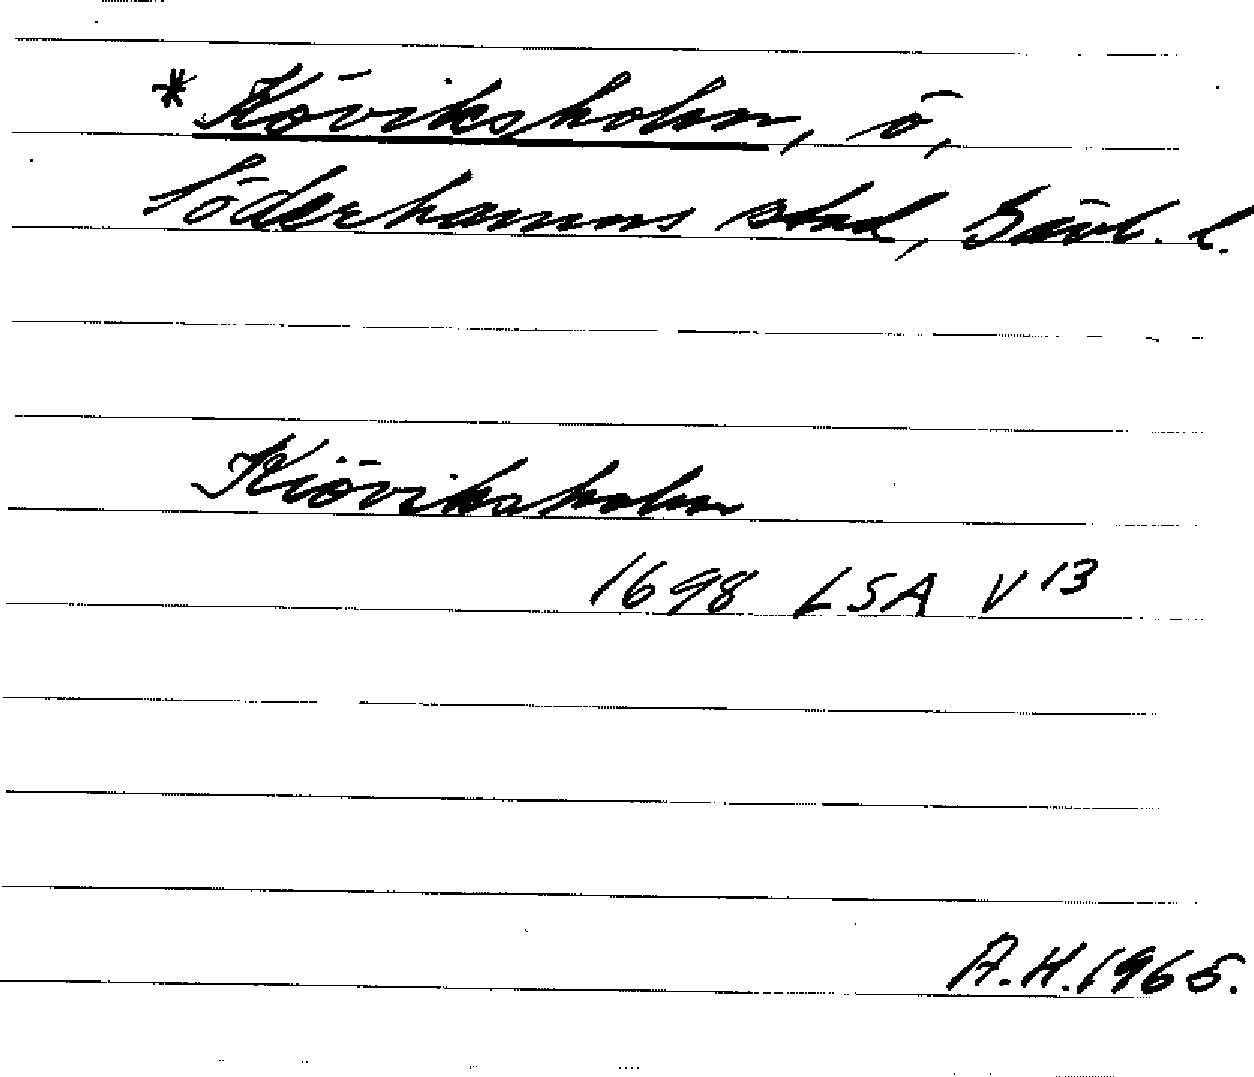 * Köviksholm, ö,
Söderhamns stad, Gävl. l.
Kiöviksholm
1698 LSA V 13
A.H. 1965.